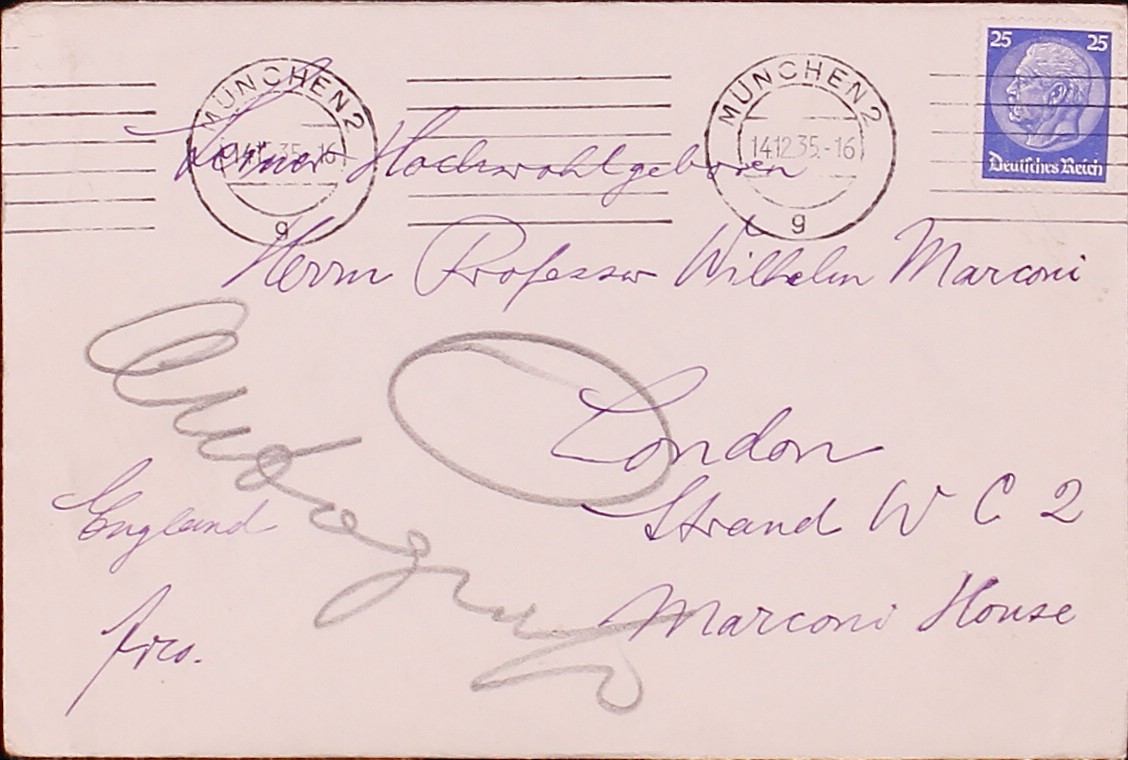 25 25
Deutsches Reich
MÜNCHEN 2
14.12.35.-16
g
MÜNCHEN 2
14.12.35.-16
g
Seiner Hochwohlgeboren
Herrn Professor Wilhelm Marconi
London
Strand W C 2
Marconi House
England
frco.